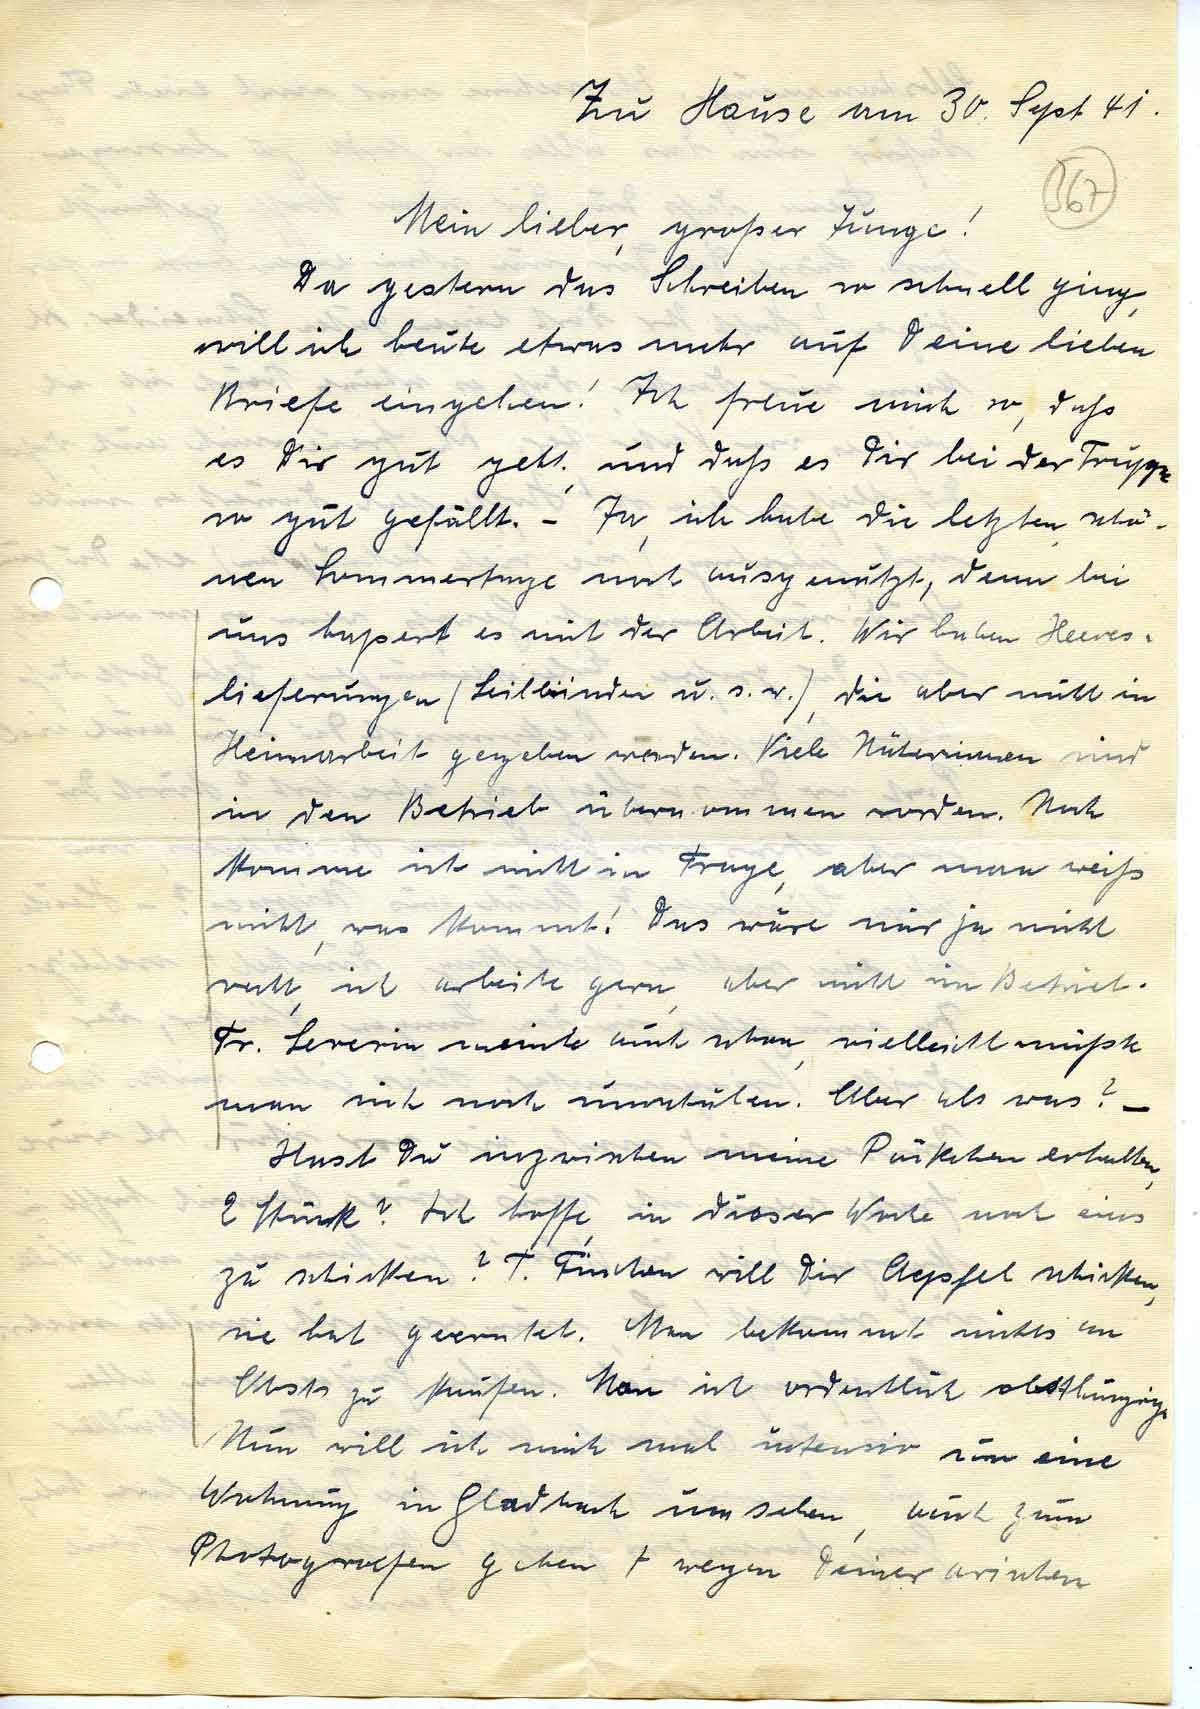 Zu Hause am 30. Sept 41.
367
Mein lieber, großer Junge!
Da gestern das Schreiben so schnell ging,
will ich heute etwas mehr auf Deine lieben
Briefe eingehen! Ich freue mich so, daß
es Dir gut geht, und daß es Dir bei der Truppe
so gut gefällt. - Ja, ich habe die letzten schö-
nen Sommertage noch ausgenützt, denn bei
uns hapert es mit der Arbeit. Wir haben Heeres-
lieferungen (Leibbinden u. s. w.), die aber nicht in
Heimarbeit gegeben werden. Viele Näherinnen sind
in den Betrieb übernommen worden. Noch
komme ich nicht in Frage, aber man weiß
nicht, was kommt! Das wäre mir ja nicht
recht, ich arbeite gern, aber nicht im Betrieb.
Fr. Severin meinte auch schon, vielleicht müßte
man sich noch umschulen. Aber als was? -
Hast Du inzwischen meine Päckchen erhalten,
2 Stück? Ich hoffe, in dieser Woche noch eins
zu schicken? T. Finchen will Dir Aepfel schicken,
sie hat geerntet. Man bekommt nichts an
Obst zu kaufen. Man ist ordentlich obsthungrig.
Nun will ich mich mal intensiv um eine
Wohnung in Gladbach umsehen, auch zum
Photografen gehen + wegen Deiner arischen